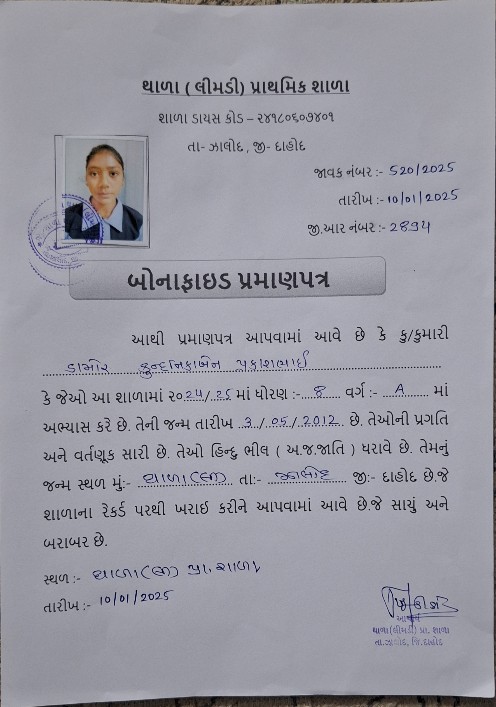 થાળા ( લીમડી) પ્રાથમિક શાળા
શાળા ડાયસ કોડ – ૨૪૧૮૦૬૦૭૪૦૧
તા- ઝાલોદ , જી- દાહોદ
જાવક નંબર :- 520/2025
તારીખ :- 10/01/2025
જી.આર નંબર :- 2894
બોનાફાઇડ પ્રમાણપત્ર
આથી પ્રમાણપત્ર આપવામાં આવે છે કે કુ/કુમારી
ડામોર પ્રકાશભાઈ
કે જેઓ આ શાળામાં ૨૦24/25 માં ધોરણ :- 8 વર્ગ :- A માં
અભ્યાસ કરે છે. તેની જન્મ તારીખ 3/05/2012 છે. તેઓની પ્રગતિ
અને વર્તણૂક સારી છે. તેઓ હિન્દુ ભીલ ( અ.જ.જાતિ ) ધરાવે છે. તેમનું
જન્મ સ્થળ મું:- થાળા(લી) તા:- ઝાલોદ જી:- દાહોદ છે.જે
શાળાના રેકર્ડ પરથી ખરાઈ કરીને આપવામાં આવે છે.જે સાચું અને
બરાબર છે.
સ્થળ :- થાળા(લી) પ્રા. શાળા
તારીખ :- 10/01/2025
આચાર્ય
થાળા(લીમડી) પ્રા. શાળા
તા.ઝાલોદ, જિ.દાહોદ